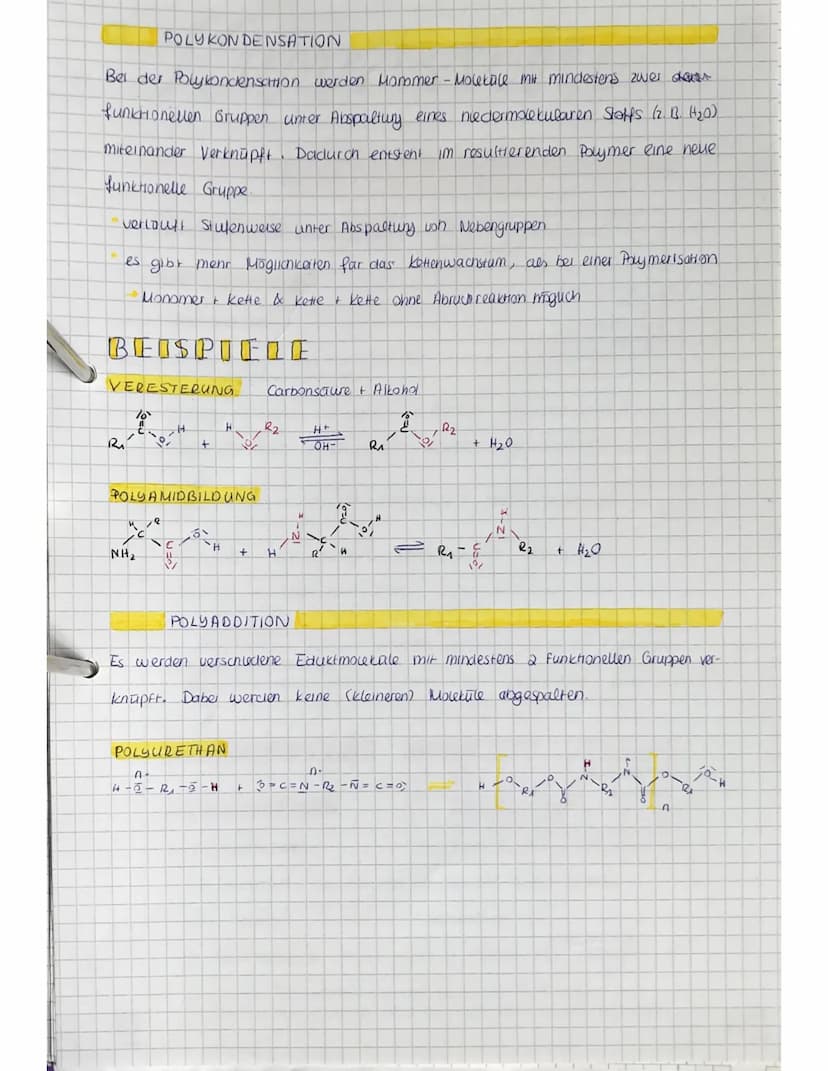 POLYKONDENSATION
Bei der Polykondensation werden Monomer-Moleküle mit mindestens zwei
funktionellen Gruppen unter Abspaltung eines niedermolekularen Stoffs (z.B. H₂O)
miteinander verknüpft. Dadurch entsteht im resultierenden Polymer eine neue
funktionelle Gruppe.
verläuft Stufenweise unter Abspaltung von Nebengruppen
es gibt mehr Möglichkeiten für das Kettenwachstum, als bei einer Polymerisation
Monomer + Kette & Kette + Kette ohne Abbruchreaktion möglich
BEISPIELE
VERESTERUNG Carbonsäure + Alkohol
R₁ C O O H + H O R₂ H+ OH- R₁ C O O R₂ + H₂O
POLYAMIDBILDUNG
NH₂ C H R C O O H + H N H C R H C O O H ⇌ R₁ - C O N H R₂ + H₂O
POLYADDITION
Es werden verschiedene Eduktmoleküle mit mindestens 2 funktionellen Gruppen ver-
knüpft. Dabei werden keine (kleineren) Moleküle abgespalten.
POLYURETHAN
n· H-O-R₁-O-H + n· O=C=N-R₂-N=C=O → H [ O R₁ O O N H R₂ N O ] n O R₁ O H